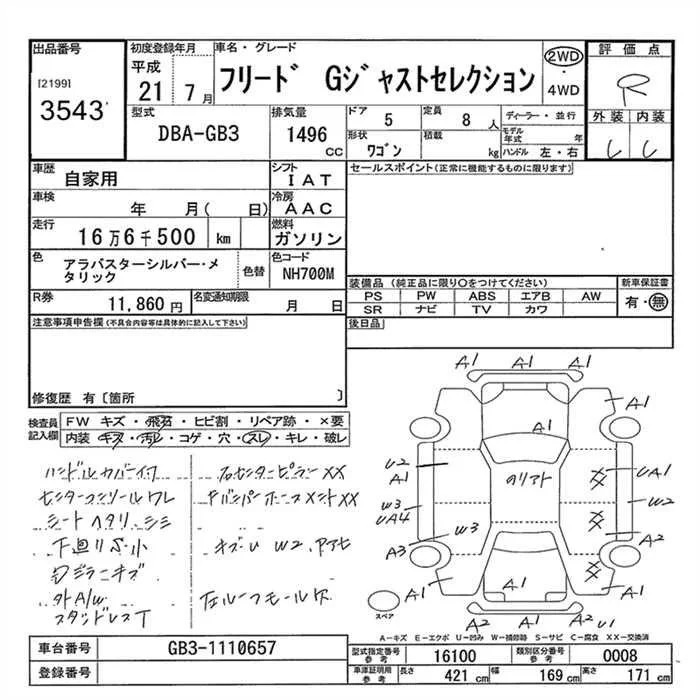 出品番号 初度登録年月 車名・グレード 2WD ・ 4WD 評価点
[2199] 3543 平成 21 7月 フリード Gジャストセレクション R
型式 排気量 ドア 5 定員 8人 ディーラー・並行 外装 内装
DBA-GB3 1496 CC 形状 ワゴン 積載 kg モデル年式 年 ハンドル 左・右 C C
車歴 自家用 シフト IAT セールスポイント(正常に機能するものに限ります)
車検 年 月( 日) 冷房 AAC
走行 16万6千500 km 燃料 ガソリン
色 アラバスターシルバー・メタリック 色替 色コード NH700M
装備品 (純正品に限り○をつけてください) 新車保証書
PS PW ABS エアB AW 有・無
SR ナビ TV カワ
R券 11,860円 名変通知期限 月 日
注意事項申告欄(不具合内容等は具体的に記入して下さい) 後日品
修復歴 有[箇所 ]
検査員記入欄 FW キズ・飛石・ヒビ割・リペア跡・×要
内装 キズ・汚レ・コゲ・穴・スレ・キレ・破レ
ハンドルカバー付 右センターピラーXX
センターコンソールワレ
シートヘタリ、シミ
下廻りS小 キズ・U W2
外A/W 左ルーフモール欠
スタッドレスT
A1 A1 A1
A1 A1 A1
U2 A1 XX UA1
W3 UA4 XX W2
A3 W3 A2
XX
A1 A1 A1
A2 A2 U1
スペア
A-キズ E-エクボ U-凹み W-補修跡 S-サビ C-腐食 XX-交換済
車台番号 GB3-1110657 型式指定番号 参考 16100 類別区分番号 参考 0008
登録番号 車庫証明用 参考 長さ 421 cm 幅 169 cm 高さ 171 cm